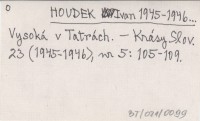 0
HOUDEK Ivan 1945-1946...
Vysoká v Tatrách. — Krásy Slov.
23 (1945-1946), nr 5: 105-109.
87/071/0099